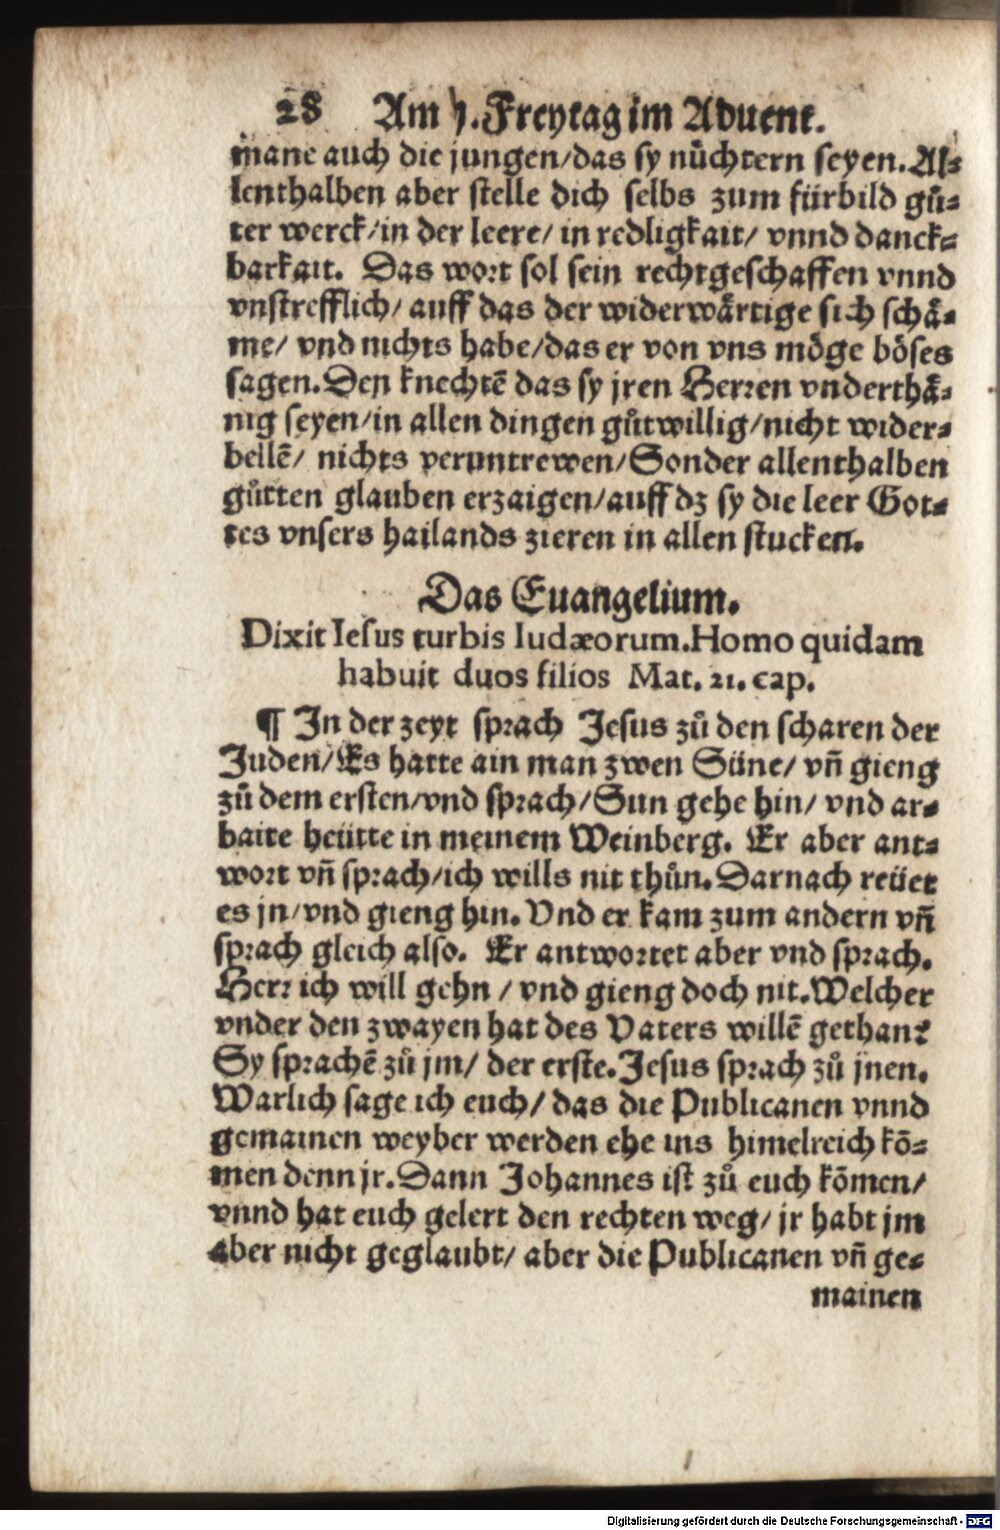 28 Am 1. Freytag im Aduent.
mane auch die jungen/das sy nüchtern seyen. Al⸗
lenthalben aber stelle dich selbs zum fürbild gů⸗
ter werck/in der leere/ in redligkait/ vnnd danck⸗
barkait. Das wort sol sein rechtgeschaffen vnnd
vnstrefflich/ auff das der widerwårtige sich schå⸗
me/ vnd nichts habe/das er von vns möge böses
sagen. Den knechtē das sy jren Herren vnderthå⸗
nig seyen/in allen dingen gůtwillig/nicht wider⸗
bellē/ nichts veruntrewen/Sonder allenthalben
gůtten glauben erzaigen/auff dz sy die leer Got⸗
tes vnsers hailands zieren in allen stucken.
Das Euangelium.
Dixit Iesus turbis Iudæorum. Homo quidam
habuit duos filios Mat. 21. cap.
¶ In der zeyt sprach Jesus zů den scharen der
Juden/Es hatte ain man zwen Süne/ vñ gieng
zů dem ersten/vnd sprach/Sun gehe hin/ vnd ar⸗
baite heütte in meinem Weinberg. Er aber ant⸗
wort vñ sprach/ich wills nit thůn. Darnach reüet
es jn/vnd gieng hin. Vnd er kam zum andern vñ
sprach gleich also. Er antwortet aber vnd sprach.
Herr ich will gehn / vnd gieng doch nit. Welcher
vnder den zwayen hat des Vaters willē gethan?
Sy sprachē zů jm/ der erste. Jesus sprach zů jnen.
Warlich sage ich euch/ das die Publicanen vnnd
gemainen weyber werden ehe ins himelreich kō⸗
men denn jr. Dann Johannes ist zů euch kōmen/
vnnd hat euch gelert den rechten weg/ jr habt jm
aber nicht geglaubt/ aber die Publicanen vñ ge⸗
mainen
Digitalisierung gefördert durch die Deutsche Forschungsgemeinschaft - DFG